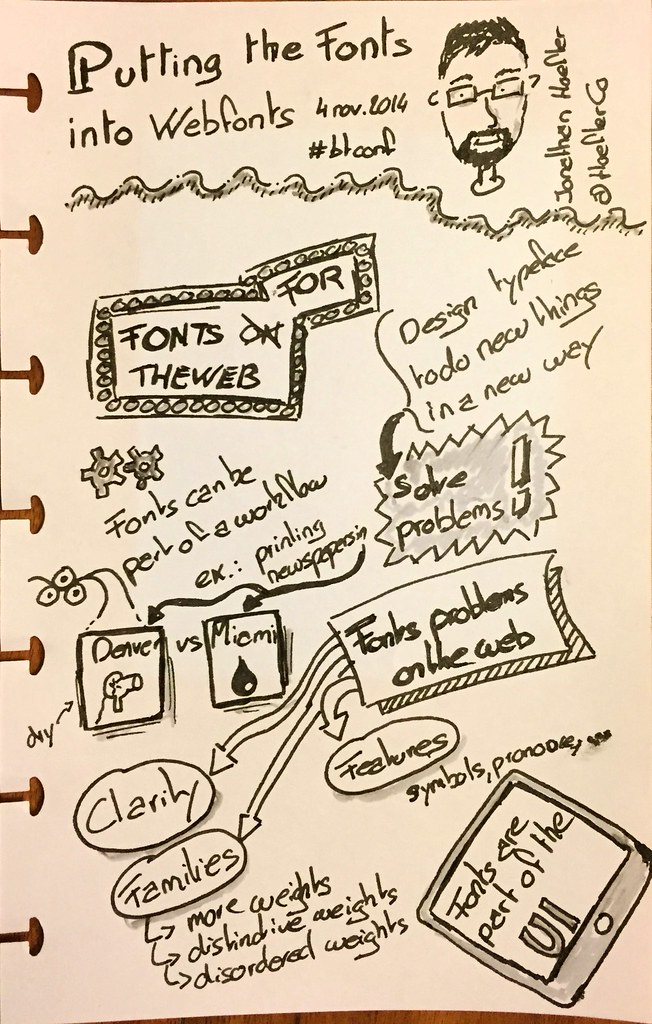 Putting the Fonts
into Webfonts
4 nov. 2014
#btconf
Jonathan Hoefler
@HoeflerCo
FOR
FONTS ON
THE WEB
Design typeface
to do new things
in a new way
Solve
problems!
Fonts can be
part of a workflow
ex.: printing
newspapers in
Denver vs Miami
dry
Fonts problems
on the web
Features
symbols, pronounce, ...
Clarity
Families
more weights
distindive weights
disordered weights
Fonts are
part of the
UI